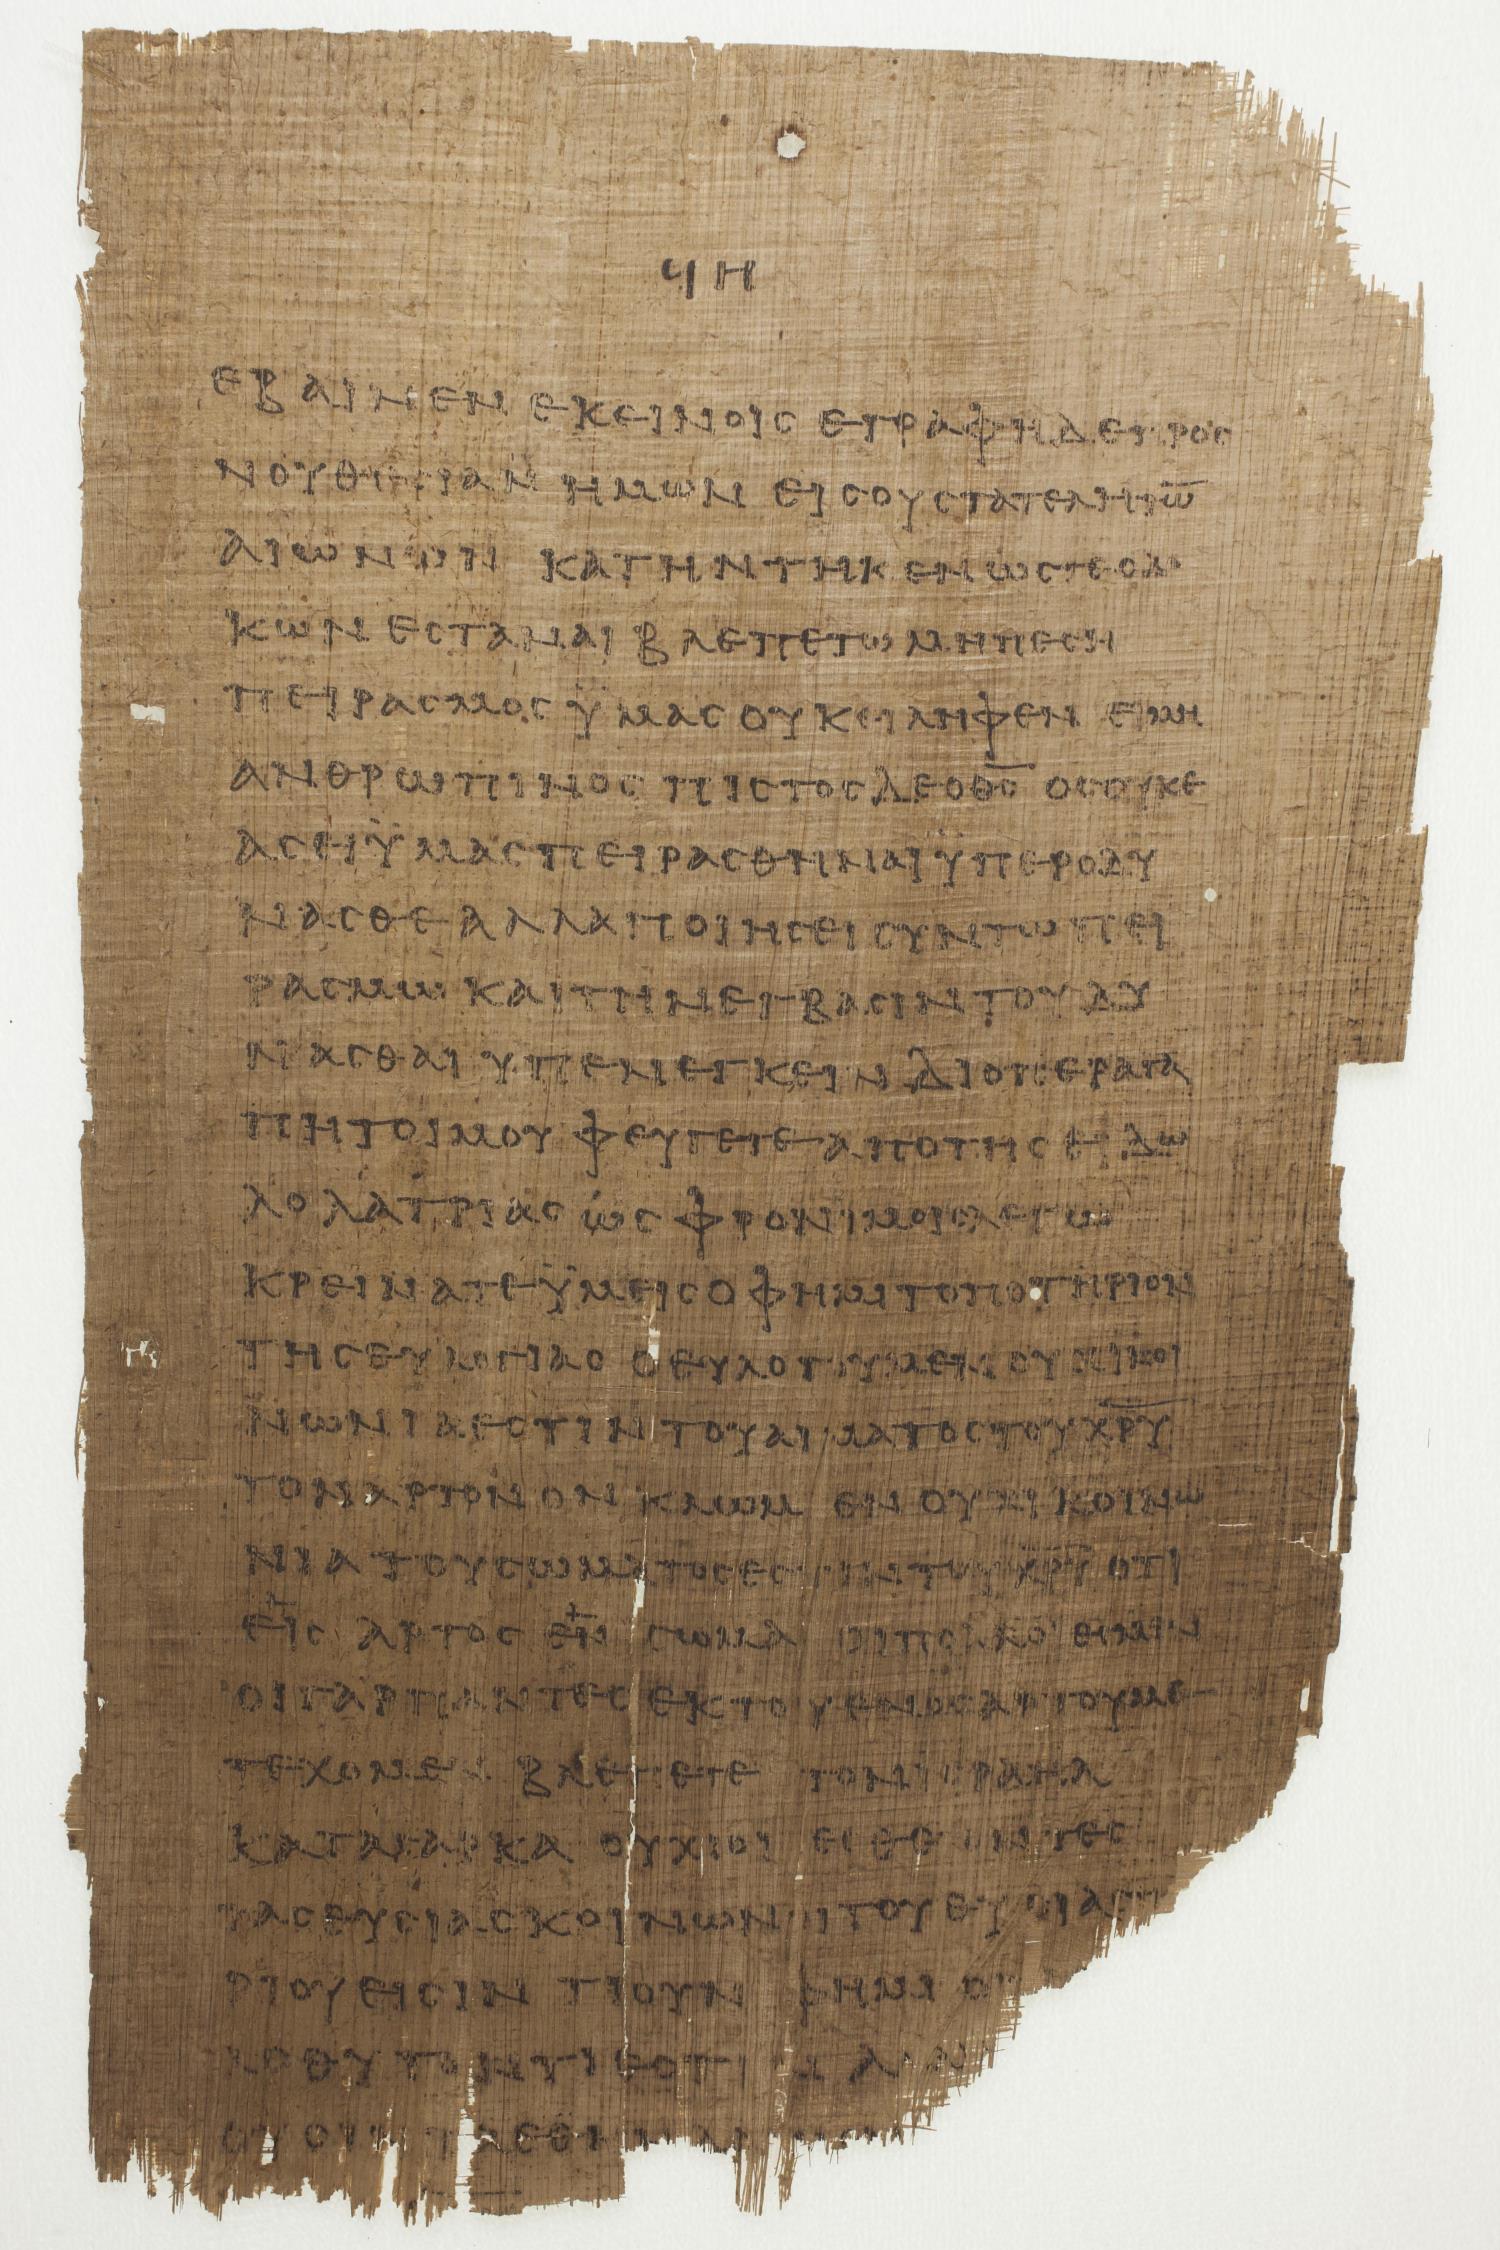 ϤΗ
ΕΒΑΙΝΕΝ ΕΚΕΙΝΟΙΣ ΕΓΡΑΦΗ ΔΕ ΠΡΟΣ
ΝΟΥΘΕΣΙΑΝ ΗΜΩΝ ΕΙΣ ΟΥΣ ΤΑ ΤΕΛΗ ΤΩ̅
ΑΙΩΝΩΝ ΚΑΤΗΝΤΗΚΕΝ ΩΣΤΕ Ο ΔΟ
ΚΩΝ ΕΣΤΑΝΑΙ ΒΛΕΠΕΤΩ ΜΗ ΠΕΣΗ
ΠΕΙΡΑΣΜΟΣ ΫΜΑΣ ΟΥΚ ΕΙΛΗΦΕΝ Ε ΜΗ
ΑΝΘΡΩΠΙΝΟΣ ΠΙΣΤΟΣ ΔΕ Ο Θ̅Σ̅ ΟΣ ΟΥΚ Ε
ΑΣΕΙ ΫΜΑΣ ΠΕΙΡΑΣΘΗΝΑΙ ΫΠΕΡ Ο ΔΥ
ΝΑΣΘΕ ΑΛΛΑ ΠΟΙΗΣΕΙ ΣΥΝ ΤΩ ΠΕΙ
ΡΑΣΜΩ ΚΑΙ ΤΗΝ ΕΓΒΑΣΙΝ ΤΟΥ ΔΥ
ΝΑΣΘΑΙ ΥΠΕΝΕΓΚΕΙΝ ΔΙΟΠΕΡ ΑΓΑ
ΠΗΤΟΙ ΜΟΥ ΦΕΥΓΕΤΕ ΑΠΟ ΤΗΣ ΕΙΔΩ
ΛΟΛΑΤΡΙΑΣ ΩΣ ΦΡΟΝΙΜΟΙΣ ΛΕΓΩ
ΚΡΕΙΝΑΤΕ ΫΜΕΙΣ Ο ΦΗΜΙ ΤΟ ΠΟΤΗΡΙΟΝ
ΤΗΣ ΕΥΛΟΓΙΑΣ Ο ΕΥΛΟΓΟΥΜΕΝ ΟΥΧΙ ΚΟΙ
ΝΩΝΙΑ ΕΣΤΙΝ ΤΟΥ ΑΙΜΑΤΟΣ ΤΟΥ Χ̅Ρ̅Υ̅
ΤΟΝ ΑΡΤΟΝ ΟΝ ΚΛΩΜΕΝ ΟΥΧΙ ΚΟΙΝΩ
ΝΙΑ ΤΟΥ ΣΩΜΑΤΟΣ ΕΣΤΙΝ ΤΟΥ Χ̅Ρ̅Υ̅ ΟΤΙ
ΕΙΣ ΑΡΤΟΣ ΕΝ ΣΩΜΑ ΟΙ ΠΟΛΛΟΙ ΕΣΜΕΝ
ΟΙ ΓΑΡ ΠΑΝΤΕΣ ΕΚ ΤΟΥ ΕΝΟΣ ΑΡΤΟΥ ΜΕ
ΤΕΧΟΜΕΝ ΒΛΕΠΕΤΕ ΤΟΝ ΙΣΡΑΗΛ
ΚΑΤΑ ΣΑΡΚΑ ΟΥΧΙ ΟΙ ΕΣΘΕΙΟΝΤΕΣ
ΤΑΣ ΘΥΣΙΑΣ ΚΟΙΝΩΝΟΙ ΤΟΥ ΘΥΣΙΑΣΤΗ
ΡΙΟΥ ΕΙΣΙΝ ΤΙ ΟΥΝ ΦΗΜΙ